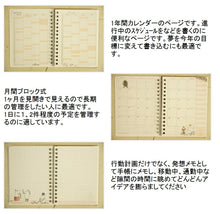 1年間カレンダーのページです。進
行中のスケジュールをなどを書くのに
便利なページです。夢を今年の目
標に変えて書き込むにも最適で
す。
月間ブロック式
1ヶ月を見開きで見えるので長期
の管理をしたい人に最適です。
1日に1、2件程度の予定を管理す
るのに適しています。
行動計画だけでなく、発想メモとし
て手帳にメモし、移動中、通勤中な
ど隙間の時間に眺めてどんどんア
イデアを膨らましてください